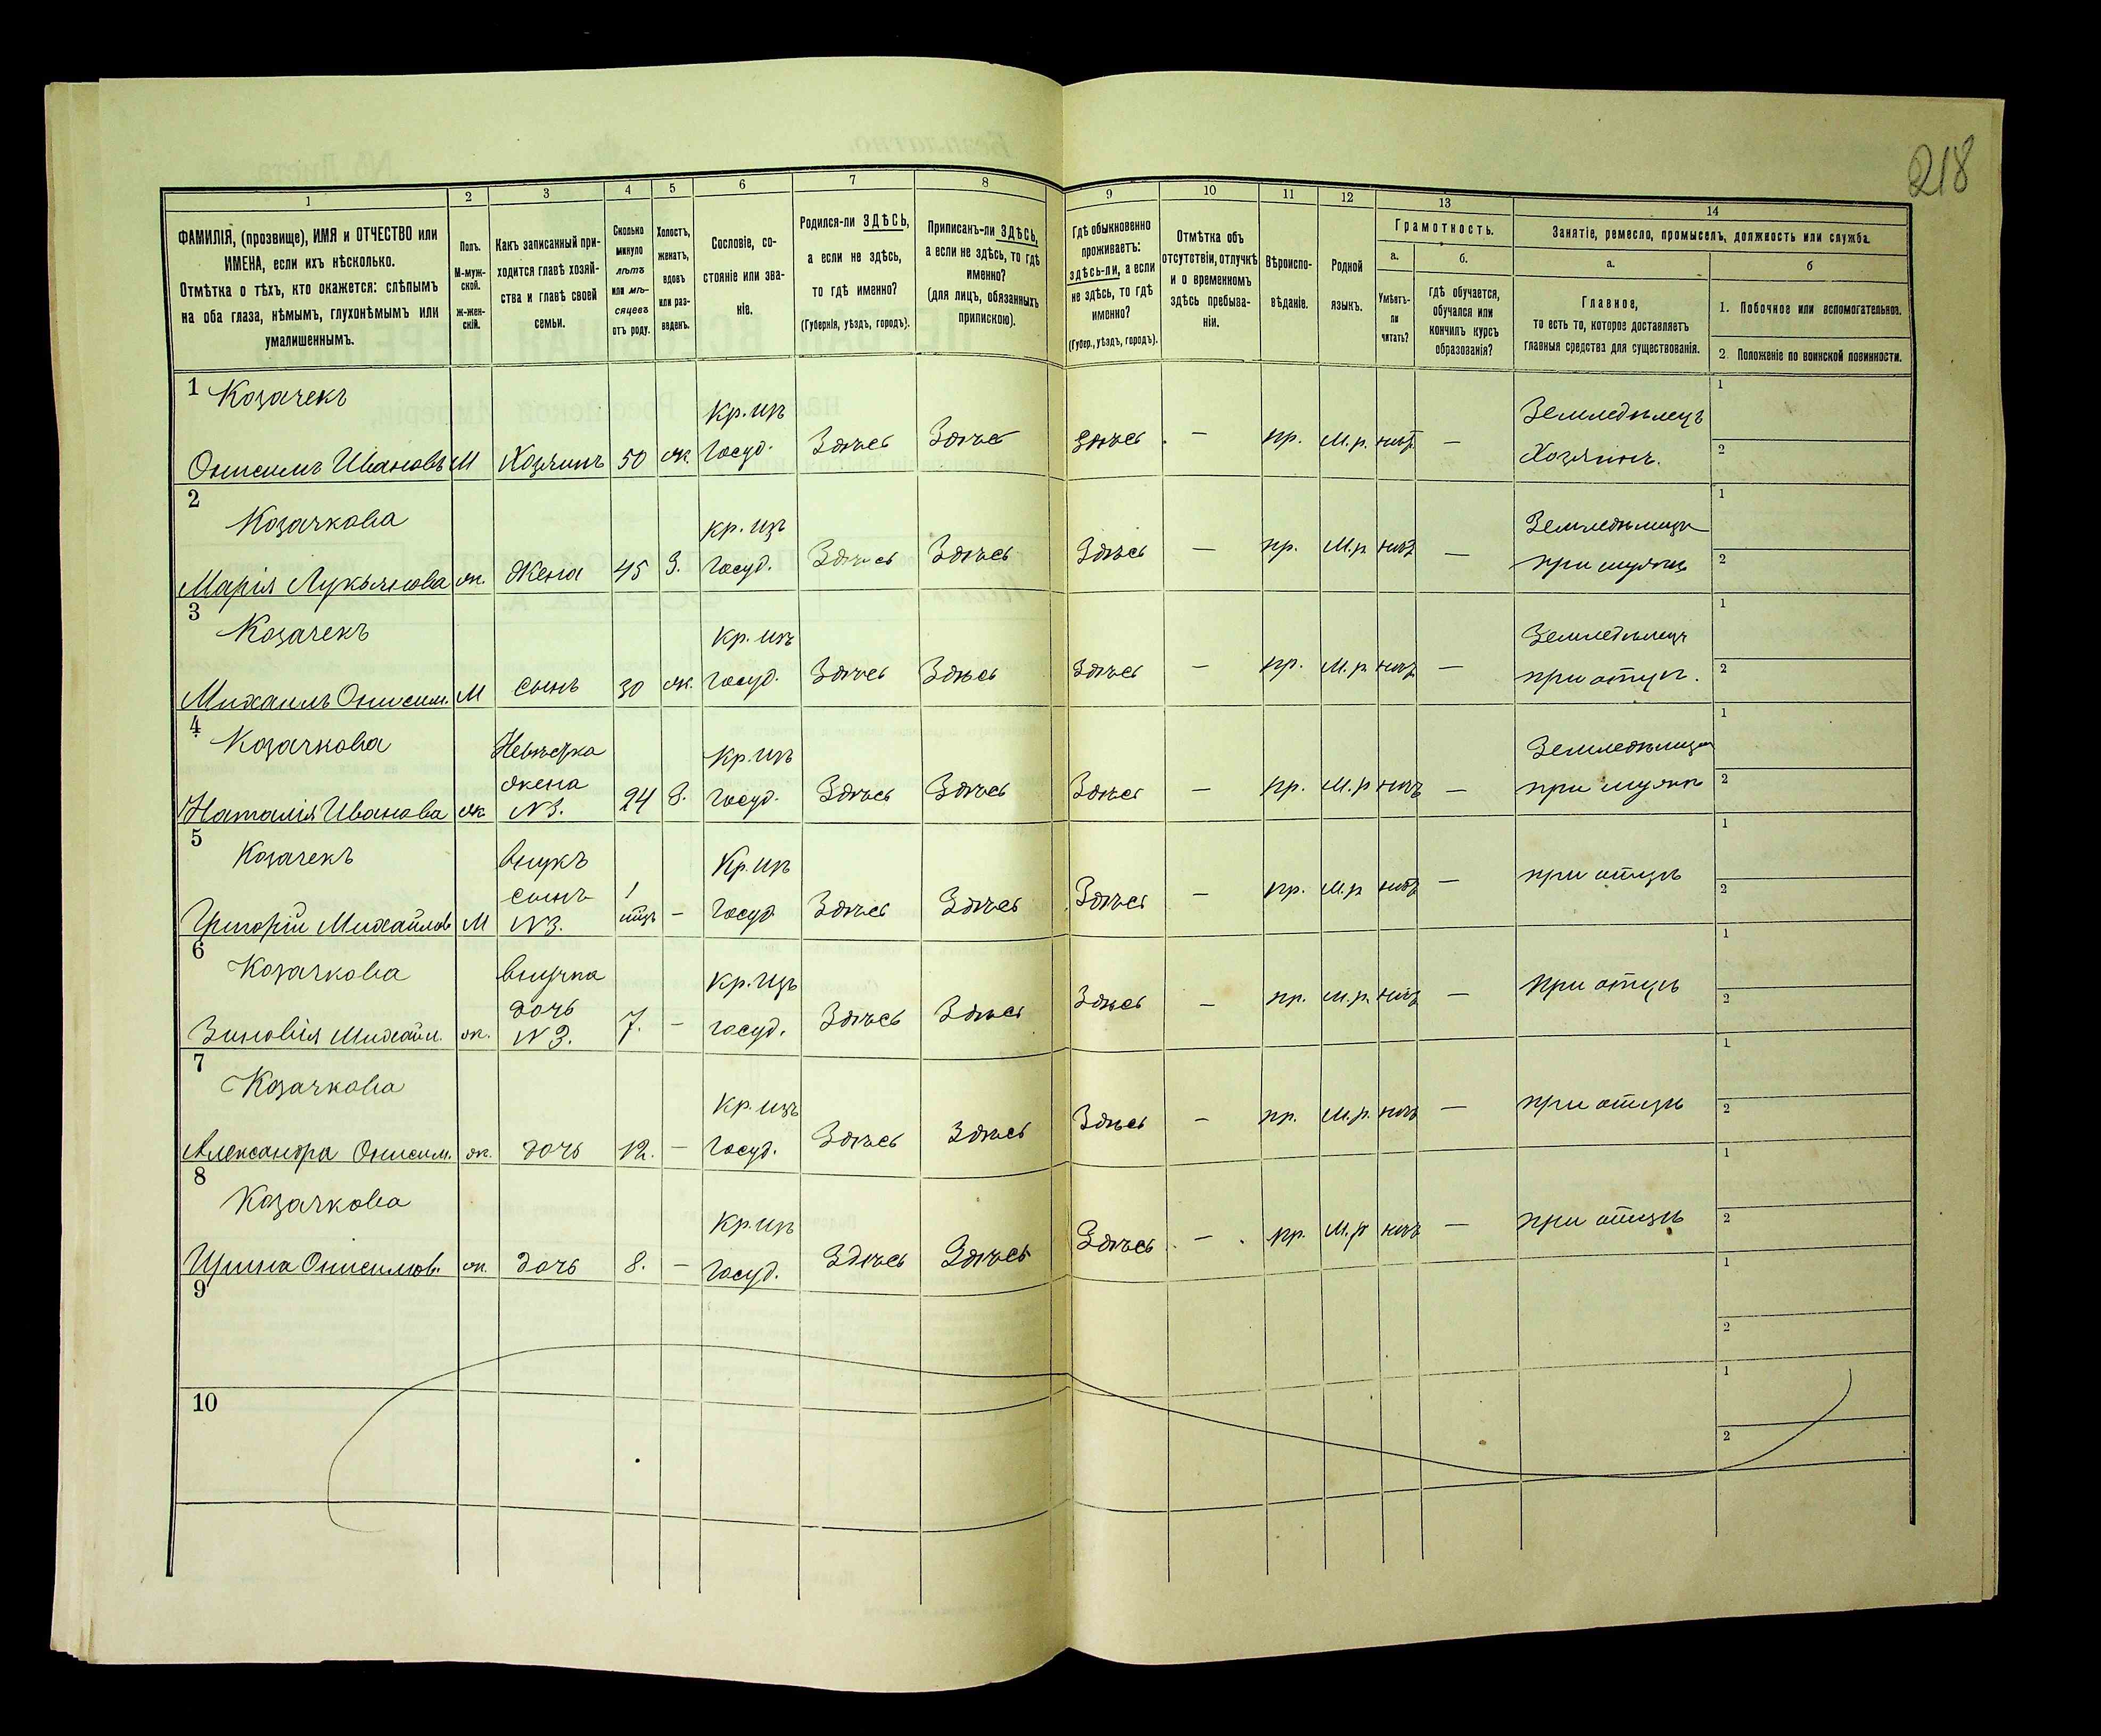 218
1
2
3
4
5
6
7
8
9
10
11
12
13
14
ФАМИЛІЯ, (прозвище), ИМЯ и ОТЧЕСТВО или
ИМЕНА, если ихъ нѣсколько.
Отмѣтка о тѣхъ, кто окажется: слѣпымъ
на оба глаза, нѣмымъ, глухонѣмымъ или
умалишеннымъ.
Полъ.
М-муж-
ской.
ж-жен-
скій.
Какъ записанный при-
ходится главѣ хозяй-
ства и главѣ своей
семьи.
Сколько
минуло
лѣтъ
или мѣ-
сяцевъ
отъ роду.
Холостъ,
женатъ,
вдовъ
или раз-
веденъ.
Сословіе, со-
стояніе или зва-
ніе.
Родился-ли ЗДѢСЬ,
а если не здѣсь,
то гдѣ именно?
(Губернія, уѣздъ, городъ).
Приписанъ-ли ЗДѢСЬ,
а если не здѣсь, то гдѣ
именно?
(для лицъ, обязанныхъ
припискою).
Гдѣ обыкновенно
проживаетъ:
здѣсь-ли, а если
не здѣсь, то гдѣ
именно?
(Губер., уѣздъ, городъ).
Отмѣтка объ
отсутствіи, отлучкѣ
и о временномъ
здѣсь пребыва-
ніи.
Вѣроиспо-
вѣданіе.
Родной
языкъ.
Грамотность.
а.
Умѣетъ-
ли
читать?
б.
гдѣ обучается,
обучался или
кончилъ курсъ
образованія?
Занятіе, ремесло, промыселъ, должность или служба.
а.
Главное,
то есть то, которое доставляетъ
главныя средства для существованія.
б
1. Побочное или вспомогательное.
2. Положеніе по воинской повинности.
1 Козачекъ
Кр. изъ
Земледѣлецъ
1
Онисимъ Ивановъ М Хозяинъ 50 ж. Госуд. Здѣсь Здѣсь Здѣсь — пр. М.р. нѣтъ — Хозяинъ. 2
2
Козачкова
кр. изъ
Земледѣлица
1
Марія Лукьянова ж. Жена 45 З. Госуд. Здѣсь Здѣсь Здѣсь — пр. М.р. нѣтъ — при мужѣ 2
3
Козачекъ
Кр. изъ
Земледѣлецъ
1
Михаилъ Онисим. М сынъ 30 ж. Госуд. Здѣсь Здѣсь Здѣсь — пр. М.р. нѣтъ — при отцѣ. 2
4
Козачкова
Невѣстка
жена
Кр. изъ
Земледѣлица
1
Наталія Иванова ж. N 3. 24 З. Госуд. Здѣсь Здѣсь Здѣсь — пр. М.р нѣтъ — при мужѣ 2
5
Козачекъ
внукъ
сынъ
1
Кр. изъ
1
Григорій Михайлов М N 3. — Госуд Здѣсь Здѣсь Здѣсь — пр. М.р нѣтъ — при отцѣ 2
6
Козачкова
внучка
дочь
Кр. изъ
1
Зиновія Михайл. ж. N 3. 7. — госуд. Здѣсь Здѣсь Здѣсь — пр. М.р. нѣтъ — при отцѣ 2
7
Козачкова
Кр. изъ
1
Александра Онисим. ж. дочь 12. — Госуд. Здѣсь Здѣсь Здѣсь — пр. М.р. нѣтъ — при отцѣ 2
8
Козачкова
Кр. изъ
1
Ирина Онисимов. ж. дочь 8. — Госуд. Здѣсь Здѣсь Здѣсь — пр. М.р нѣтъ — при отцѣ 2
9
1
2
10
1
2